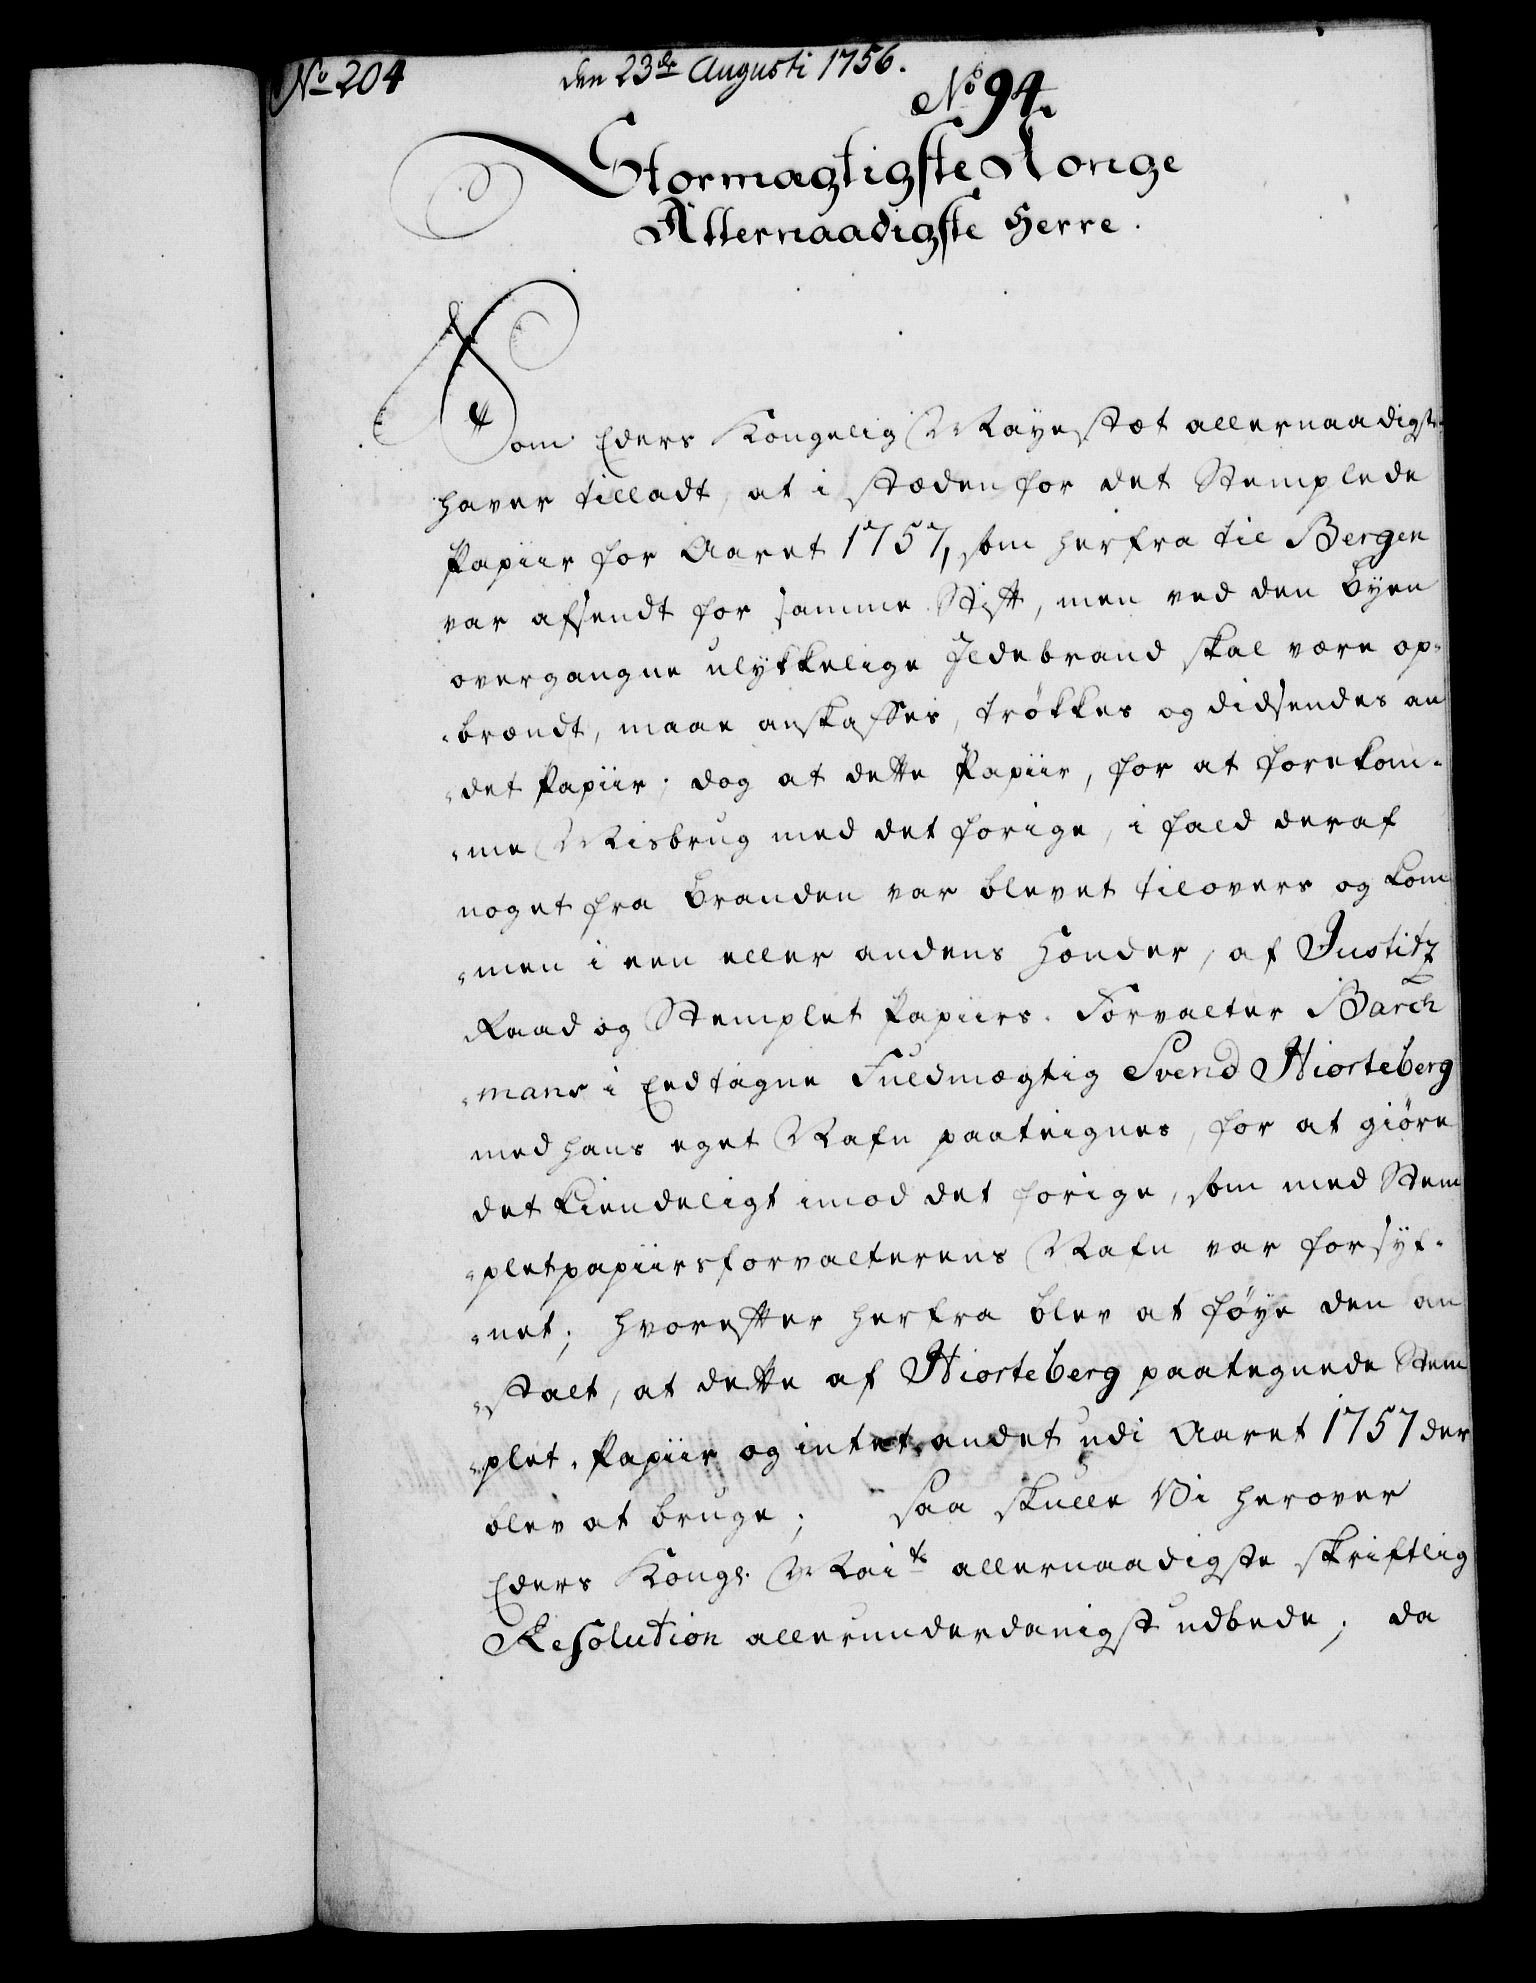 No 204
den 23de Augusti 1756.
No 94.
Stormagtigste Konge
Allernaadigste Herre.
Som Eders Kongelig Mayestæt allernaadigst
haver tilladt, at i stæden for det Stemplede
Papiir for Aaret 1757, som herfra til Bergen
var afsendt for samme Stift, men ved den Byen
overgangne ulykkelige Jldebrand skal være op-
-brændt, maae anskaffes, trøkkes og didsendes an
-det Papiir; dog at dette Papiir, for at forekom-
-me Misbrug med det forige, i fald deraf
noget fra Branden var blevet tilovers og kom
-men i een eller andens Hænder, af Justitz
Raad og Stemplet Papiirs-Forvalter Barch
-mans i Eedtagne Fuldmægtig Svend Hiorteberg
med hans eget Nafn paateignes, for at giøre
det kiendeligt imod det forige, som med Stem
-pletpapiirsforvalterens Nafn var forsyf-
-net; hvorefter herfra blev at føye den an
-stalt, at dette af Hiorteberg paategnede Stem
-plet-Papiir og intet andet udi Aaret 1757 der
blev at bruge; saa skulle Vi herover
Eders Kongl. Maits allernaadigste skriftlig
Resolution allerunderdanigst udbede; da